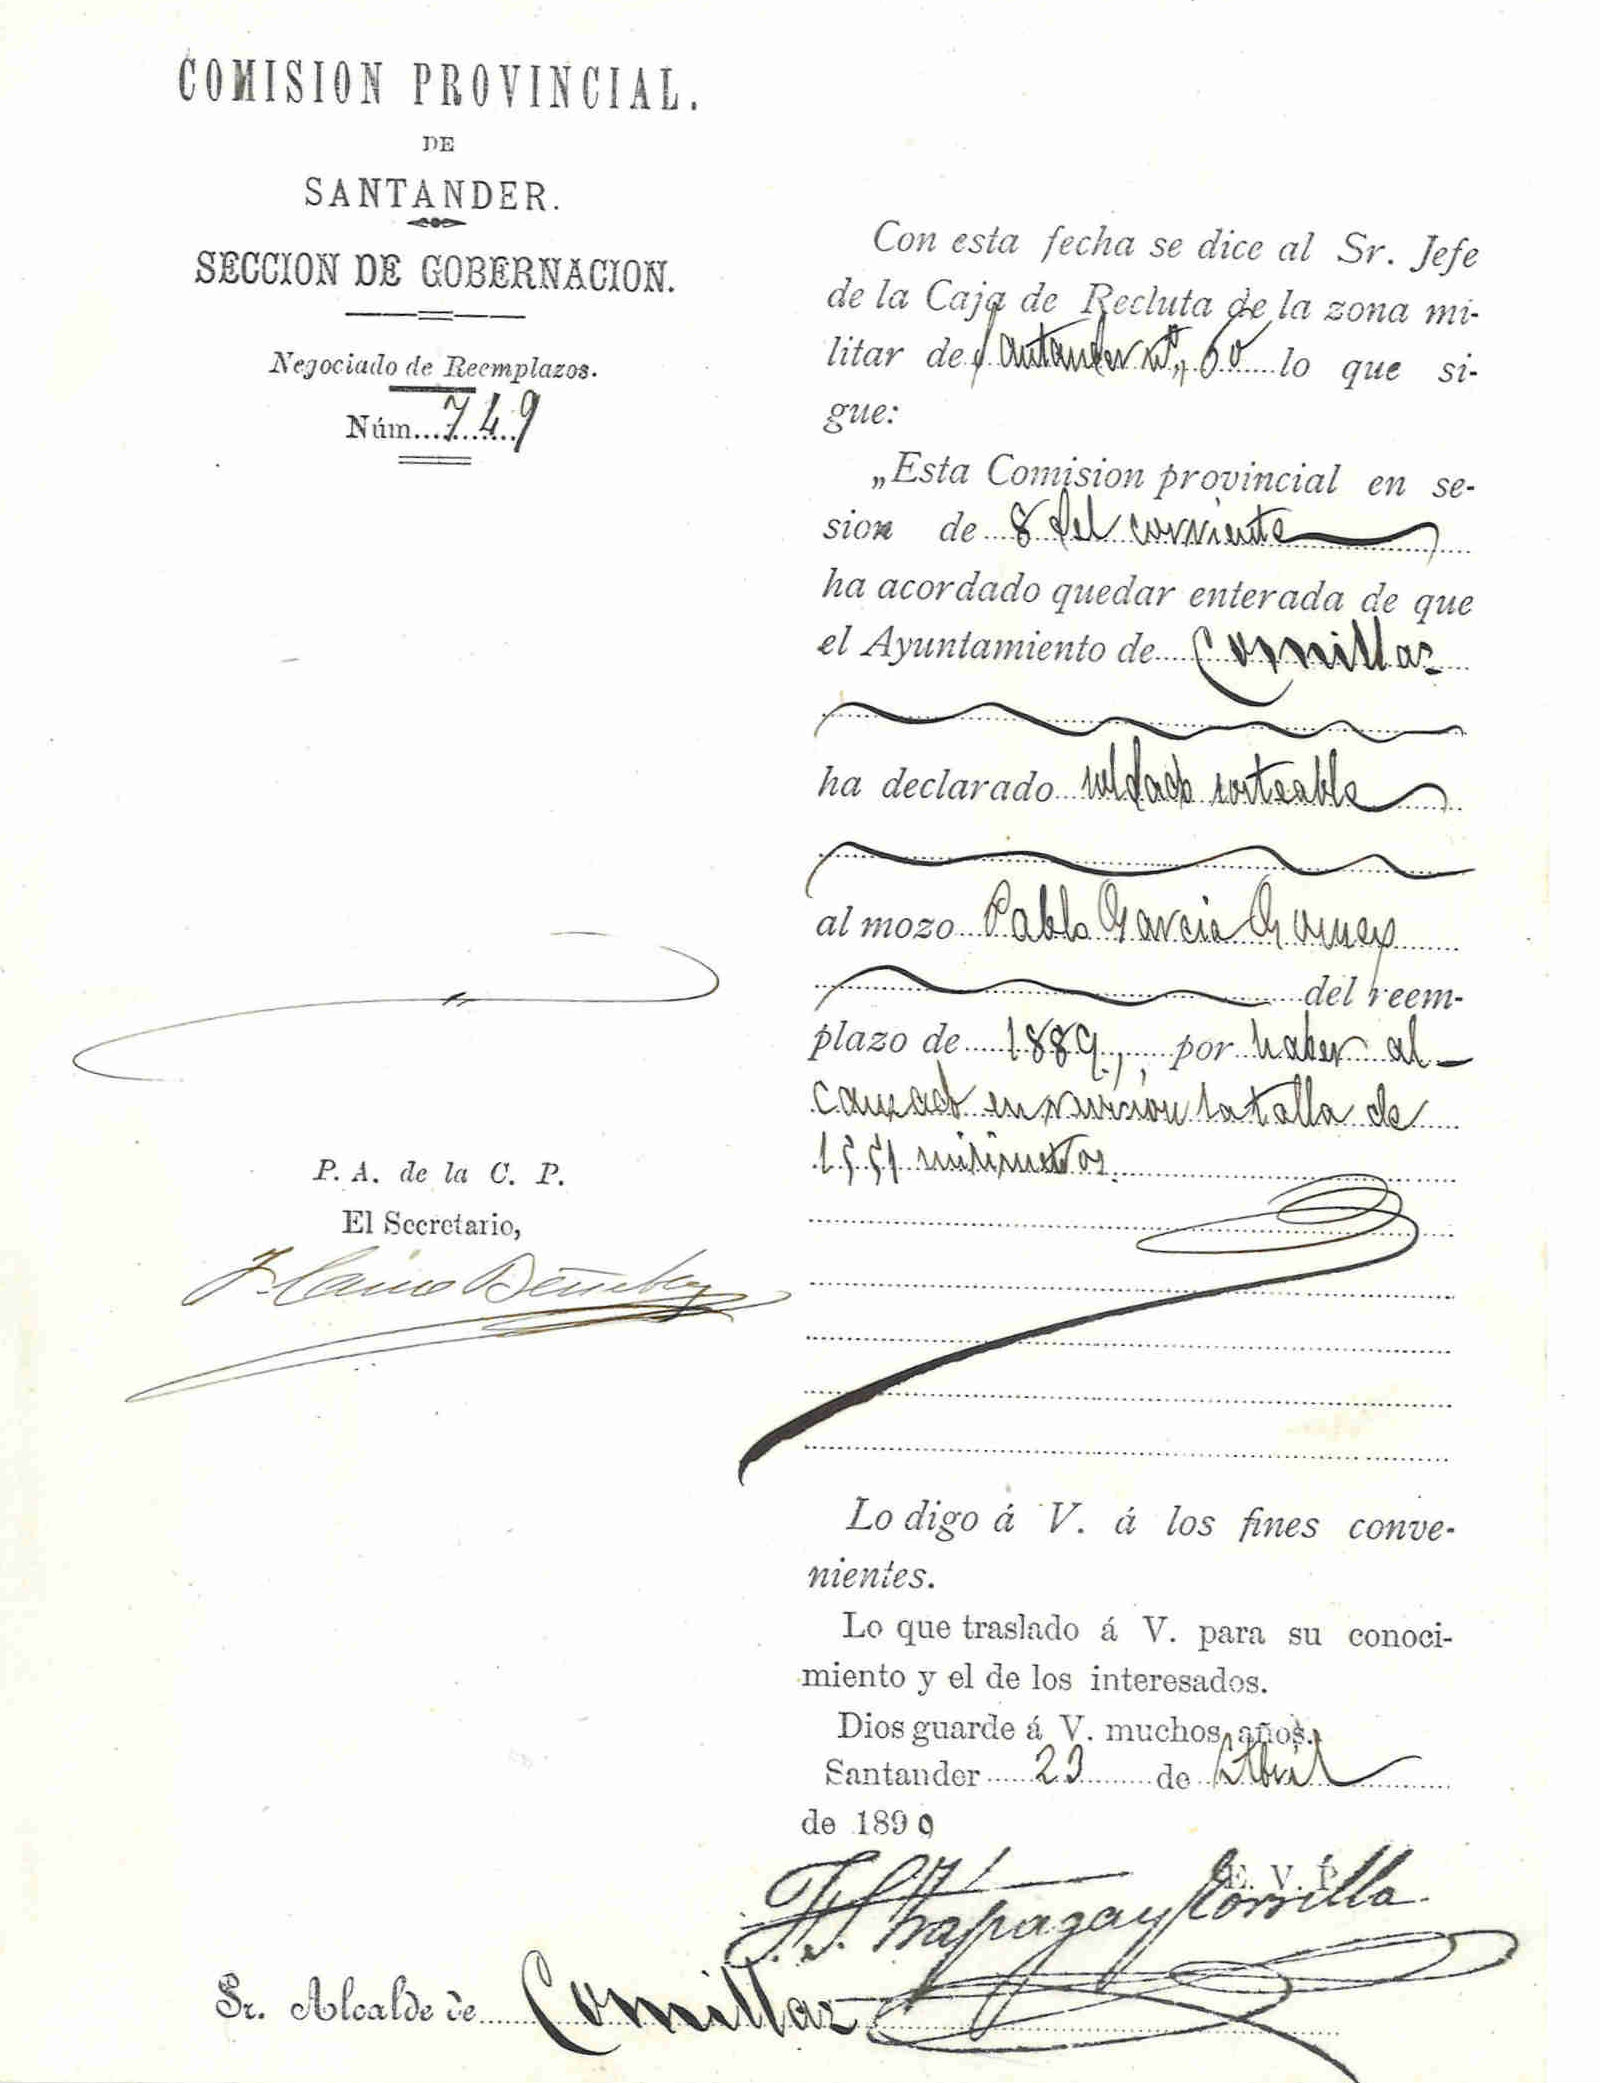 COMISION PROVINCIAL.
DE
SANTANDER.
SECCION DE GOBERNACION.
Negociado de Reemplazos.
Núm. 749
Con esta fecha se dice al Sr. Jefe
de la Caja de Recluta de la zona mi-
litar de Santander nº 60 lo que si-
gue:
„Esta Comision provincial en se-
sion de 8 del corriente
ha acordado quedar enterada de que
el Ayuntamiento de Comillas
ha declarado soldado sorteable
al mozo Pablo Garcia Gomez
del reem-
plazo de 1889, por haber al-
canzado en revision la talla de
1551 milimetros.
P. A. de la C. P.
El Secretario,
Lo digo á V. á los fines conve-
nientes.
Lo que traslado á V. para su conoci-
miento y el de los interesados.
Dios guarde á V. muchos años.
Santander 23 de Abril
de 1890
E. V. P.
Sr. Alcalde de Comillas